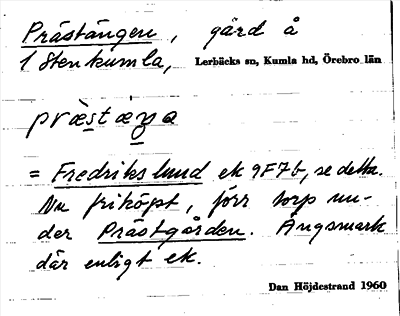 Prästängen, gärd å
1 Stenkumla, Lerbäcks sn, Kumla hd, Örebro län
præ̀stæŋa
= Fredrikslund ek 9F7b, se detta.
Nu friköpt, förr torp un-
der Prästgården. Ängsmark
där enligt ek.
Dan Höjdestrand 1960